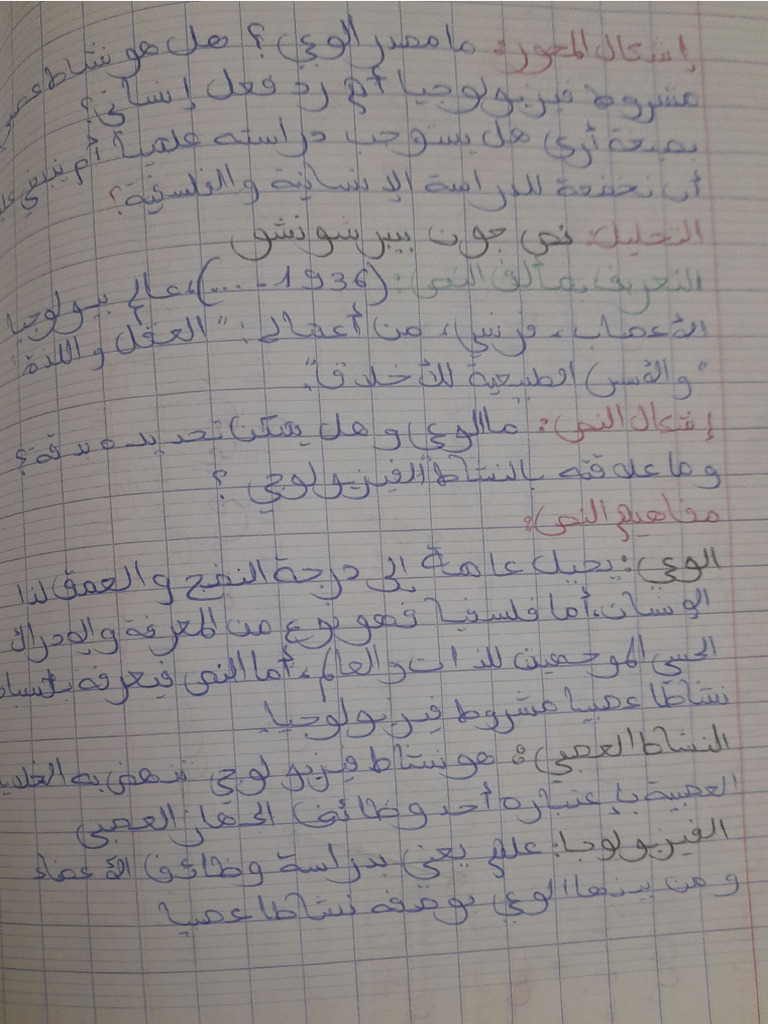 إشكال المحور: ما مصدر الوعي؟ هل هو نشاط عصبي
مشروط فيزيولوجيا أم رد فعل إنساني؟
بصيغة أخرى هل يستوجب دراسته علميا أم ينبغي
أن نخضعة للدراسة الإنسانية والفلسفية؟
التحليل: نص جون بيير شونشو
التعريف بمألف النص: (1936 - ...)، عالم بيولوجيا
الأعصاب، فرنسي، من أعماله: "العقل واللذة"
"والأسس الطبيعية للأخلاق".
إشكال النص: ما الوعي وهل يمكن تحديده بدقة؟
وما علاقته بالنشاط الفيزيولوجي؟
مفاهيم النص:
الوعي: يحيل عامة إلى درجة النضج والعمق لدا
الإنسان، أما فلسفيا فهو نوع من المعرفة والإدراك
الحسي الموجهين للذات والعالم، أما النص فيعرفه
نشاطا عصبيا مشروط فيزيولوجيا.
النشاط العصبي: هو نشاط فيزيولوجي تنهض به الخلايا
العصبية بإعتباره أحد وظائف الجهاز العصبي
الفيزيولوجيا: علم يعنى بدراسة وظائف الأعضاء
ومن بينها الوعي بوصفه نشاطا عصبيا